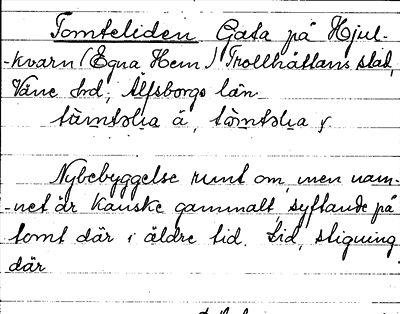 Tomteliden Gata på Hjul-
-kvarn (Egna Hem) Trollhättans stad,
Väne hd, Älfsborgs län
Nybebyggelse runt om, men nam-
-net är kanske gammalt, syftande på
tomt där i äldre tid. Lid, stigning
där